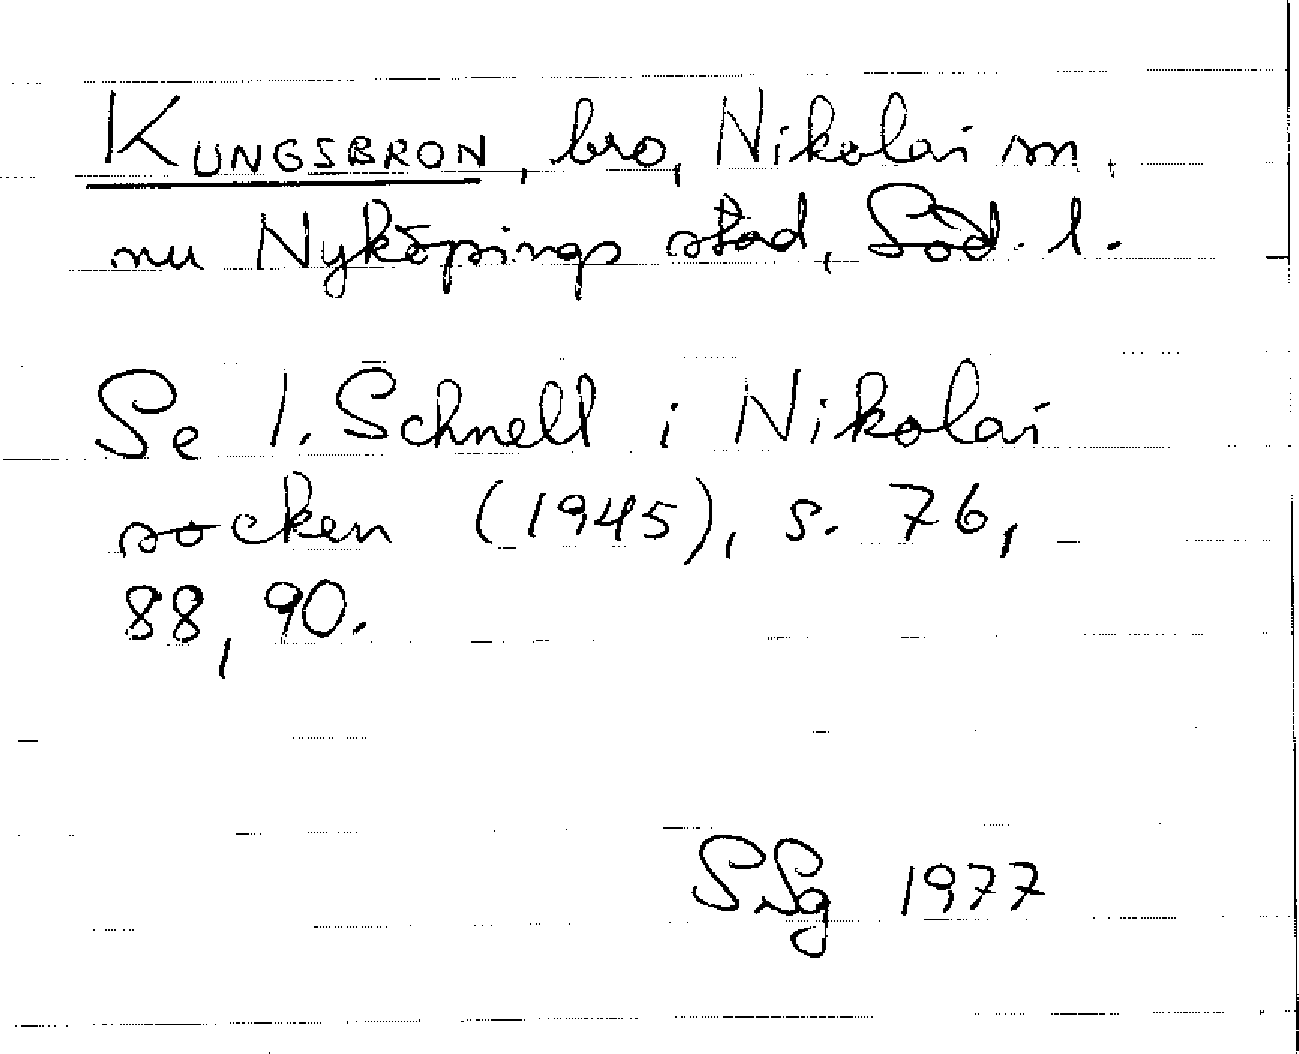 KUNGSBRON, bro, Nikolai sn.
nu Nyköpings stad, Söd. l.
Se I. Schnell i Nikolai
socken (1945), s. 76,
88, 90.
SSg 1977